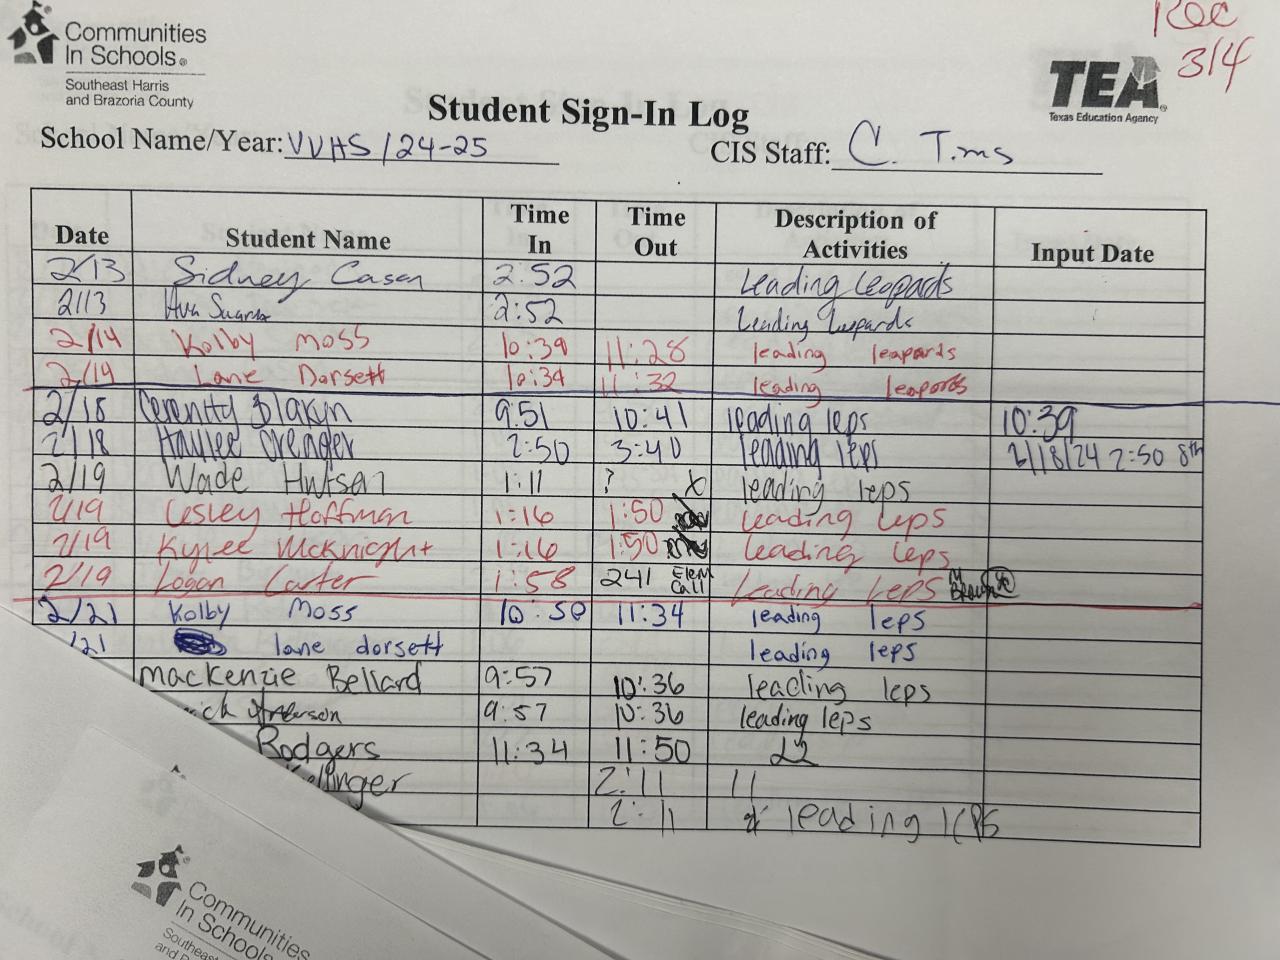 Communities
In Schools®
Southeast Harris
and Brazoria County
Rec
3/4
TEA
Texas Education Agency
Student Sign-In Log
School Name/Year: VVHS / 24-25
CIS Staff: C. Tims
Date Student Name Time In Time Out Description of Activities Input Date
2/13 Sidney Casen 2:52 Leading Leopards
2/13 Ava 2:52 Leading Leopards
2/14 Kolby Moss 10:39 11:28 leading leapards
2/14 Lane Dorsett 10:34 11:32 leading leapords
2/18 Cerenity Blakyn 9:51 10:41 leading leps 10:39
2/18 Haylee Crenger 2:50 3:40 leading leps 2/18/24 2:50 8th
2/19 Wade Hutsen 1:11 ? x leading leps
2/19 Lesley Hoffman 1:16 1:50 Leading Leps
2/19 Kylee McKnight 1:16 1:50 Leading Leps
2/19 Logan Carter 1:58 241 Elem Call Leading Leps
2/21 Kolby Moss 10:50 11:34 leading leps
/21 lane dorsett leading leps
Mackenzie Bellard 9:57 10:36 leading leps
rick Anderson 9:57 10:36 leading leps
Rodgers 11:34 11:50 LL
llinger 2:11 11
2:11 leading leps
Communities
In Schools
Southeast
and B